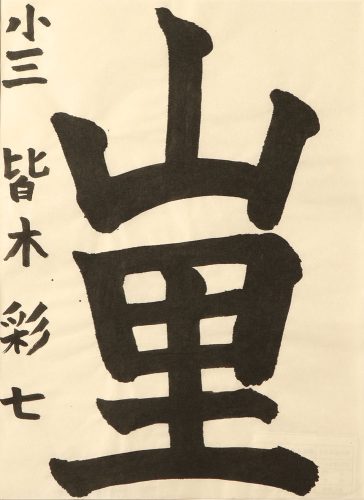 山里
小三 皆木彩七